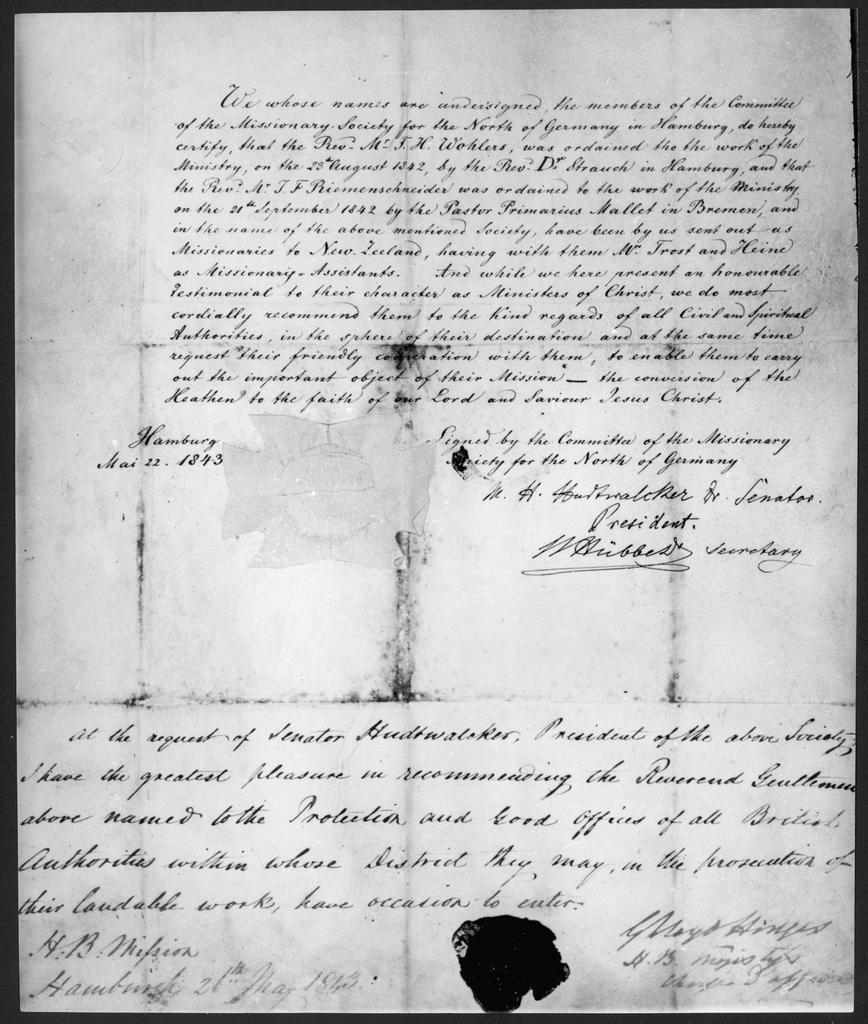 We whose names are undersigned, the members of the Committee
of the Missionary-Society for the North of Germany in Hamburg, do hereby
certify, that the Revd. Mr. J. H. Wohlers, was ordained tho the work of the
Ministry, on the 23d August 1842, by the Revd. Dr. Strauch in Hamburg, and that
the Revd. Mr. J. F. Riemenschneider was ordained to the work of the Ministry
on the 21th September 1842 by the Pastor Primarius Mallet in Bremen, and
in the name of the above mentioned Society, have been by us sent out as
Missionaries to New-Zeeland, having with them Mrs. Trost and Heine
as Missionary-Assistants. And while we here present an honourable
Testimonial to their character as Ministers of Christ, we do most
cordially recommend them to the kind regards of all Civil and Spiritual
Authorities, in the sphere of their destination and at the same time
request their friendly cooperation with them, to enable them to carry
out the important object of their Mission — the conversion of the
Heathen to the faith of our Lord and Saviour Jesus Christ.
Hamburg
Mai 22. 1843
Signed by the Committee of the Missionary
Society for the North of Germany
M. H. Hudtwalcker Dr. Senator.
President.
Hübbe Dr Secretary
At the request of Senator Hudtwalcker, President of the above Society,
I have the greatest pleasure in recommending the Reverend Gentlemen
above named to the Protection and Good Offices of all British
Authorities within whose District they may, in the prosecution of
their laudable work, have occasion to enter.
H. B. Mission
Hamburgh 26th May 1843.
H. B.